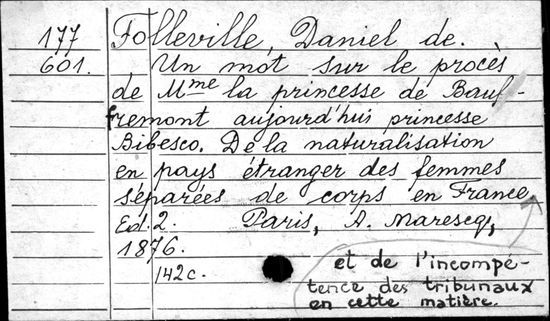 177
601.
Folleville, Daniel de.
Un mot sur le procès
de Mme la princesse de Bauf-
fremont aujourd'hui princesse
Bibesco. De la naturalisation
en pays étranger des femmes
séparées de corps en France
Ed. 2. Paris, A. Marescq,
1876.
142 c.
et de l'incompé-
tence des tribunaux
en cette matière.